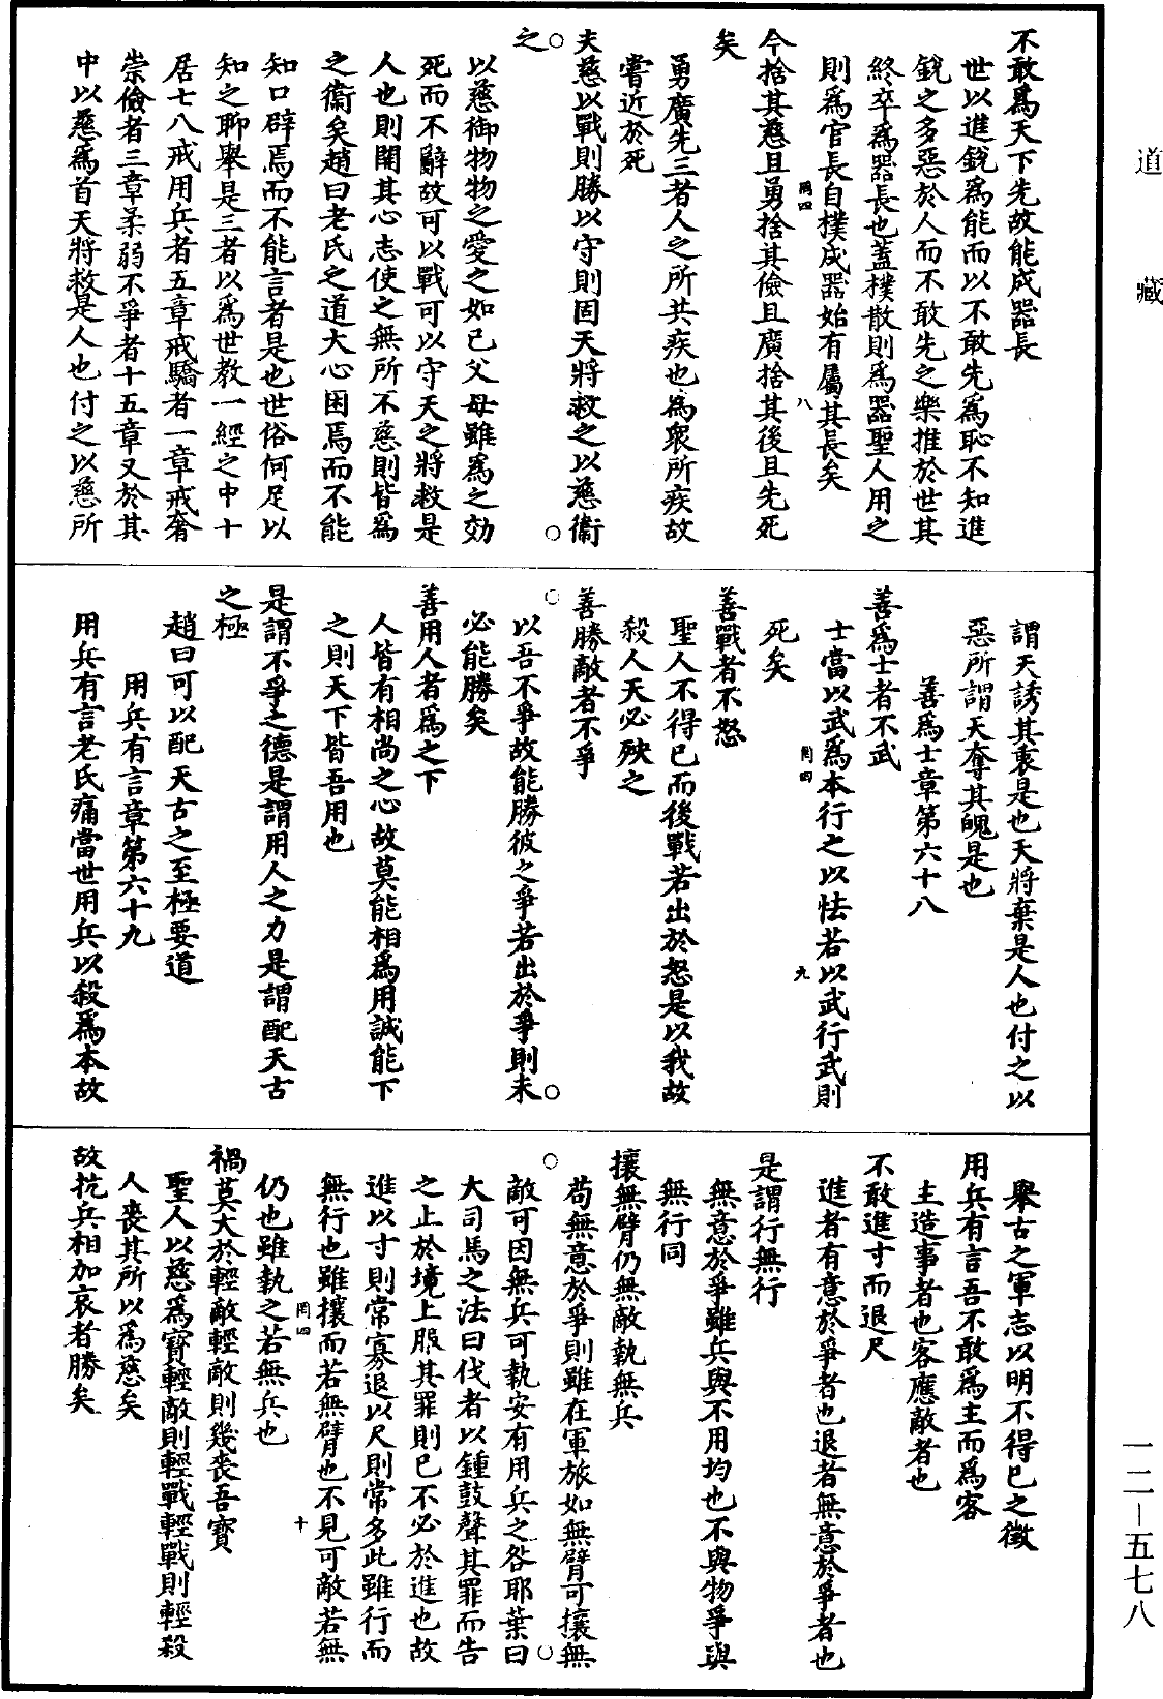 道藏
不敢為天下先故能成器長
世以進銳為能而以不敢先為恥不知進
銳之多惡於人而不敢先之樂推於世其
終卒為器長也蓋樸散則為器聖人用之
則為官長自樸成器始有屬其長矣
罔四
八
今捨其慈且勇捨其儉且廣捨其後且先死
矣
勇廣先三者人之所共疾也為衆所疾故
嘗近於死
夫慈以戰則勝以守則固天將救之以慈衞
之
以慈御物物之愛之如己父母雖為之効
死而不辭故可以戰可以守天之將救是
人也則開其心志使之無所不慈則皆為
之衞矣趙曰老氏之道大心困焉而不能
知口辟焉而不能言者是也世俗何足以
知之聊舉是三者以為世教一經之中十
居七八戒用兵者五章戒驕者一章戒奢
崇儉者三章柔弱不爭者十五章又於其
中以慈為首天將救是人也付之以慈所
謂天誘其衷是也天將棄是人也付之以
惡所謂天奪其魄是也
善為士章第六十八
善為士者不武
士當以武為本行之以怯若以武行武則
死矣
罔四
九
善戰者不怒
聖人不得已而後戰若出於怒是以我故
殺人天必殃之
善勝敵者不爭
以吾不爭故能勝彼之爭若出於爭則未
必能勝矣
善用人者為之下
人皆有相尚之心故莫能相為用誠能下
之則天下皆吾用也
是謂不爭之德是謂用人之力是謂配天古
之極
趙曰可以配天古之至極要道
用兵有言章第六十九
用兵有言老氏痛當世用兵以殺為本故
舉古之軍志以明不得已之徵
用兵有言吾不敢為主而為客
主造事者也客應敵者也
不敢進寸而退尺
進者有意於爭者也退者無意於爭者也
是謂行無行
無意於爭雖兵與不用均也不與物爭與
無行同
攘無臂仍無敵執無兵
苟無意於爭則雖在軍旅如無臂可攘無
敵可因無兵可執安有用兵之咎耶葉曰
大司馬之法曰伐者以鍾鼓聲其罪而告
之止於境上服其罪則已不必於進也故
進以寸則常寡退以尺則常多此雖行而
無行也雖攘而若無臂也不見可敵若無
罔四
十
仍也雖執之若無兵也
禍莫大於輕敵輕敵則幾喪吾寶
聖人以慈為寶輕敵則輕戰輕戰則輕殺
人喪其所以為慈矣
故抗兵相加哀者勝矣
一二—五七八